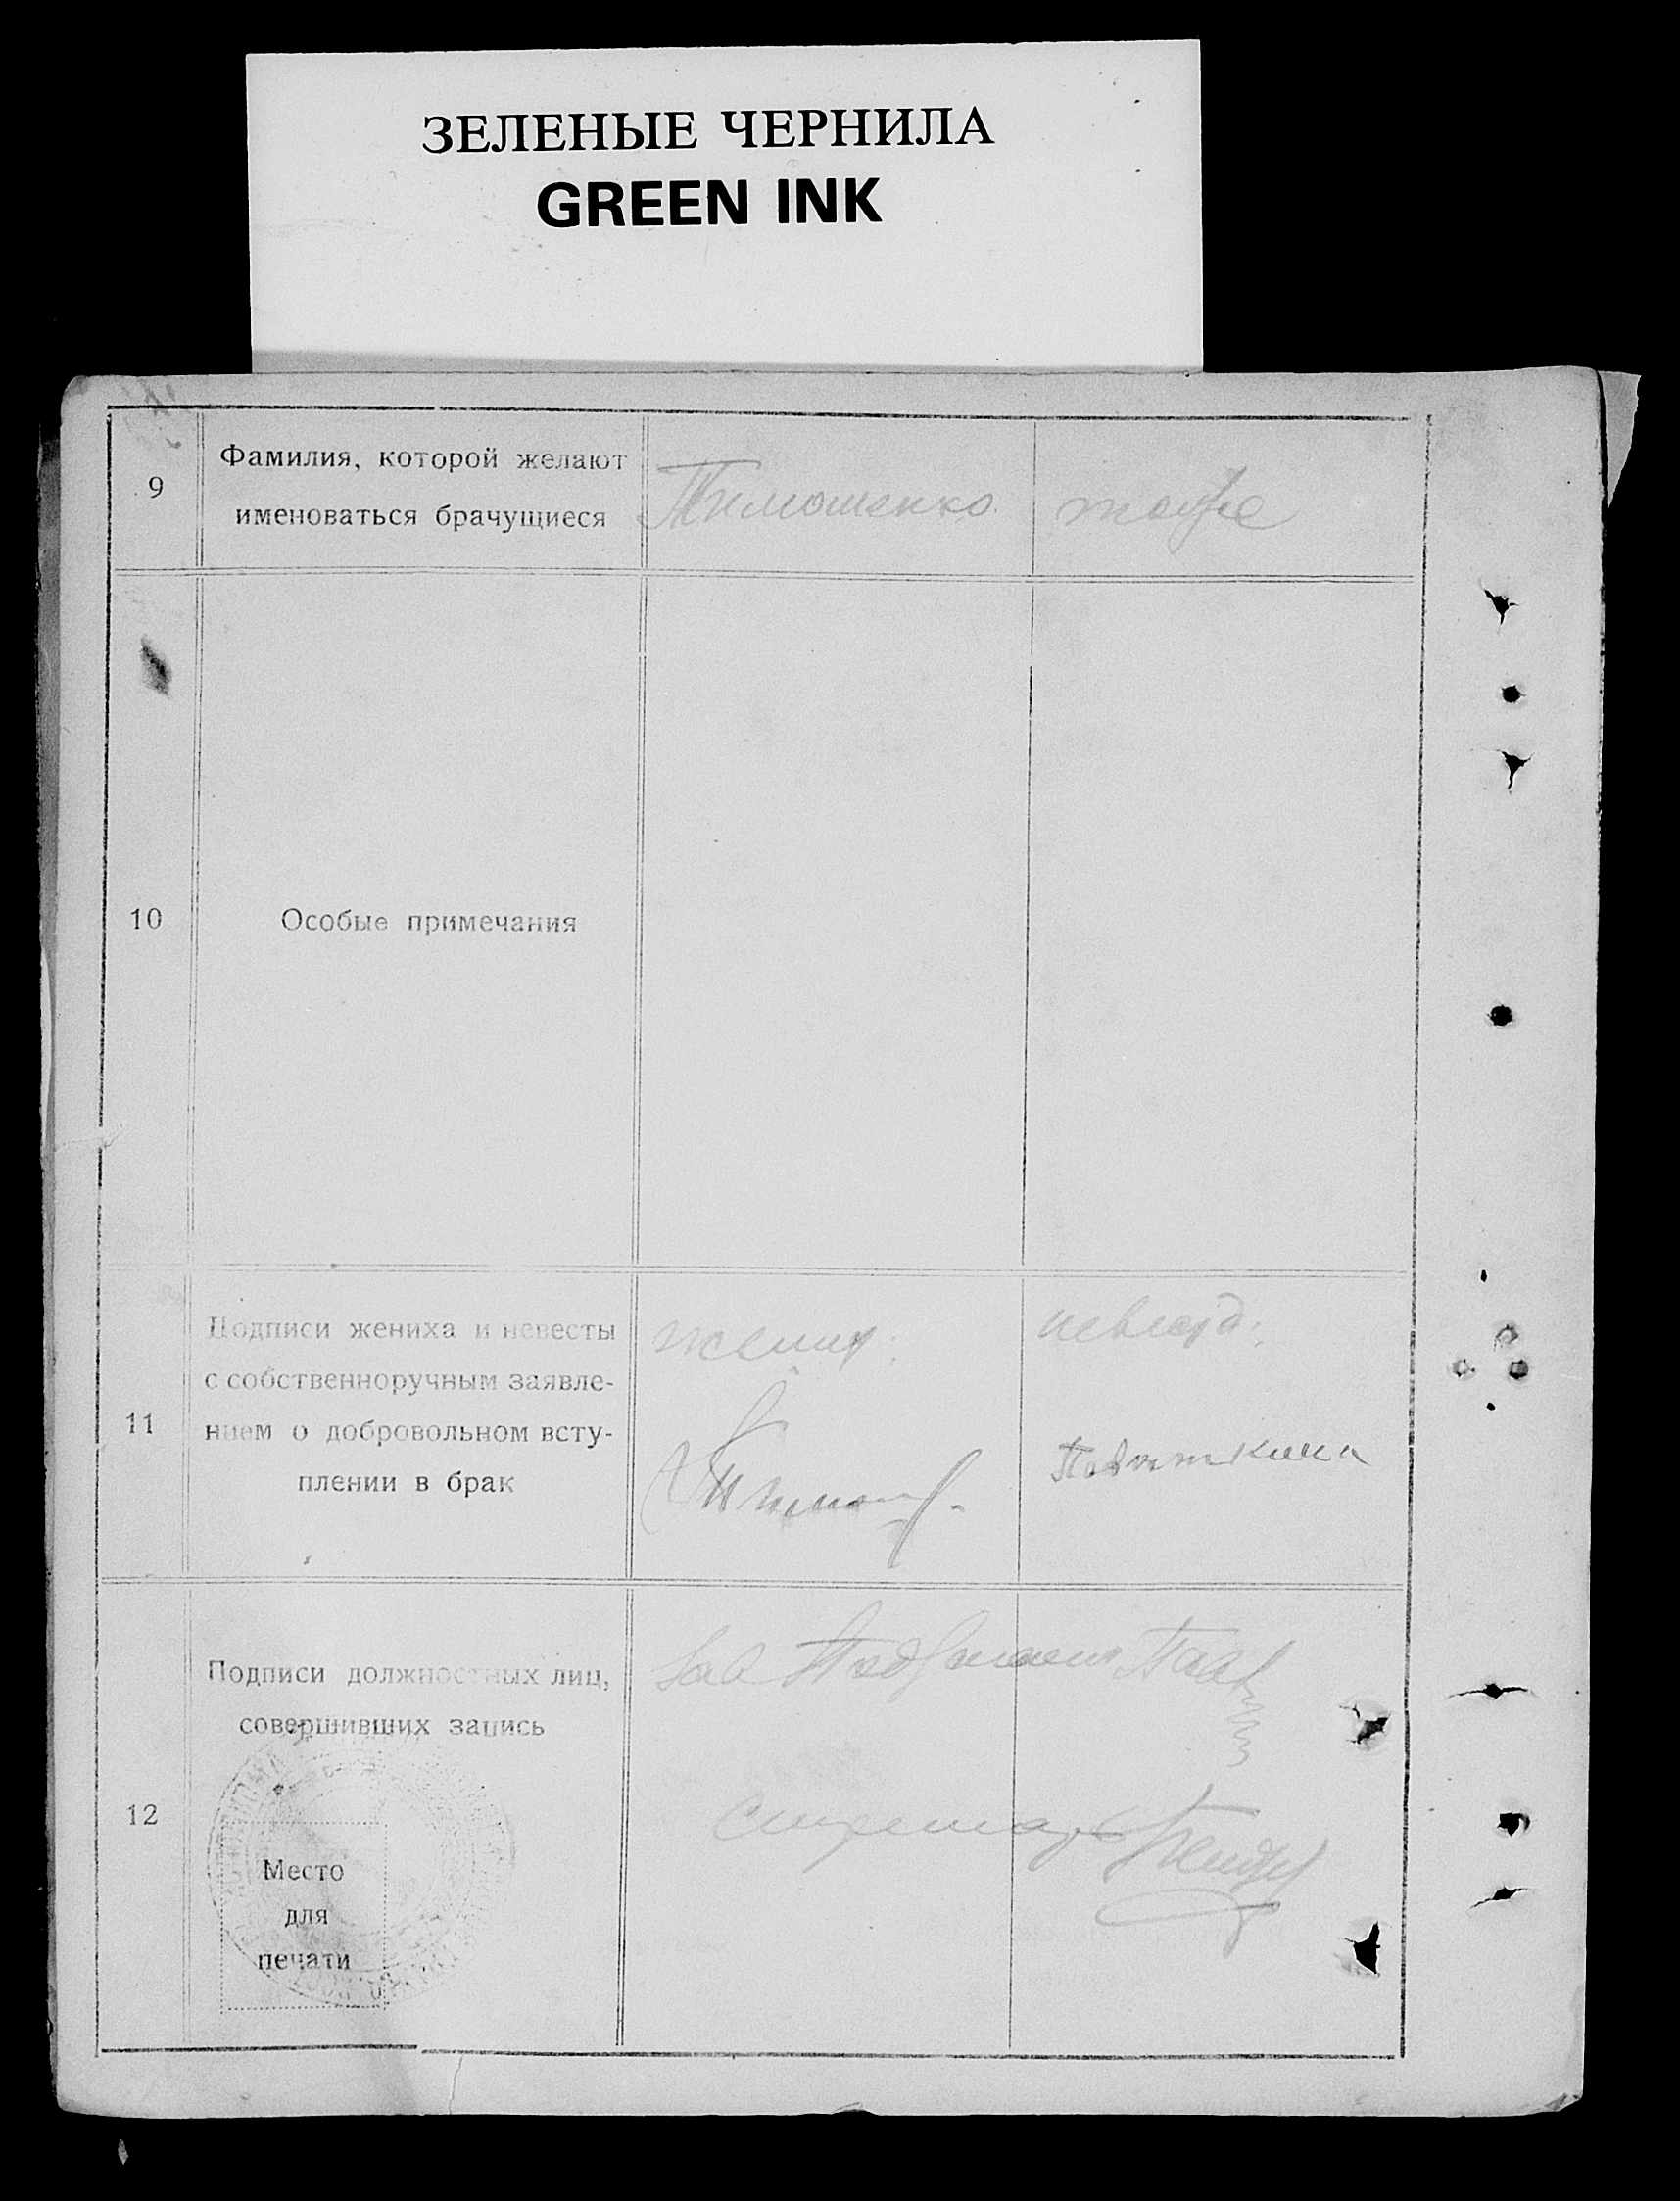 ЗЕЛЕНЫЕ ЧЕРНИЛА
GREEN INK
9
Фамилия, которой желают
именоваться брачущиеся
Тимошенко
тоже
10
Особые примечания
11
Подписи жениха и невесты
с собственноручным заявле-
нием о добровольном всту-
плении в брак
жених:
невеста:
12
Подписи должностных лиц,
совершивших запись
Зав
Секретарь
Место
для
печати